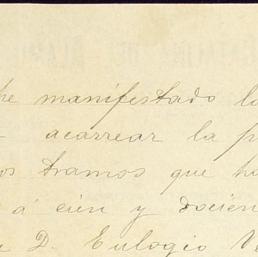 he manifestado l
acarrear la p
os tramos que ha
á cien y docien
D. Eulogio V